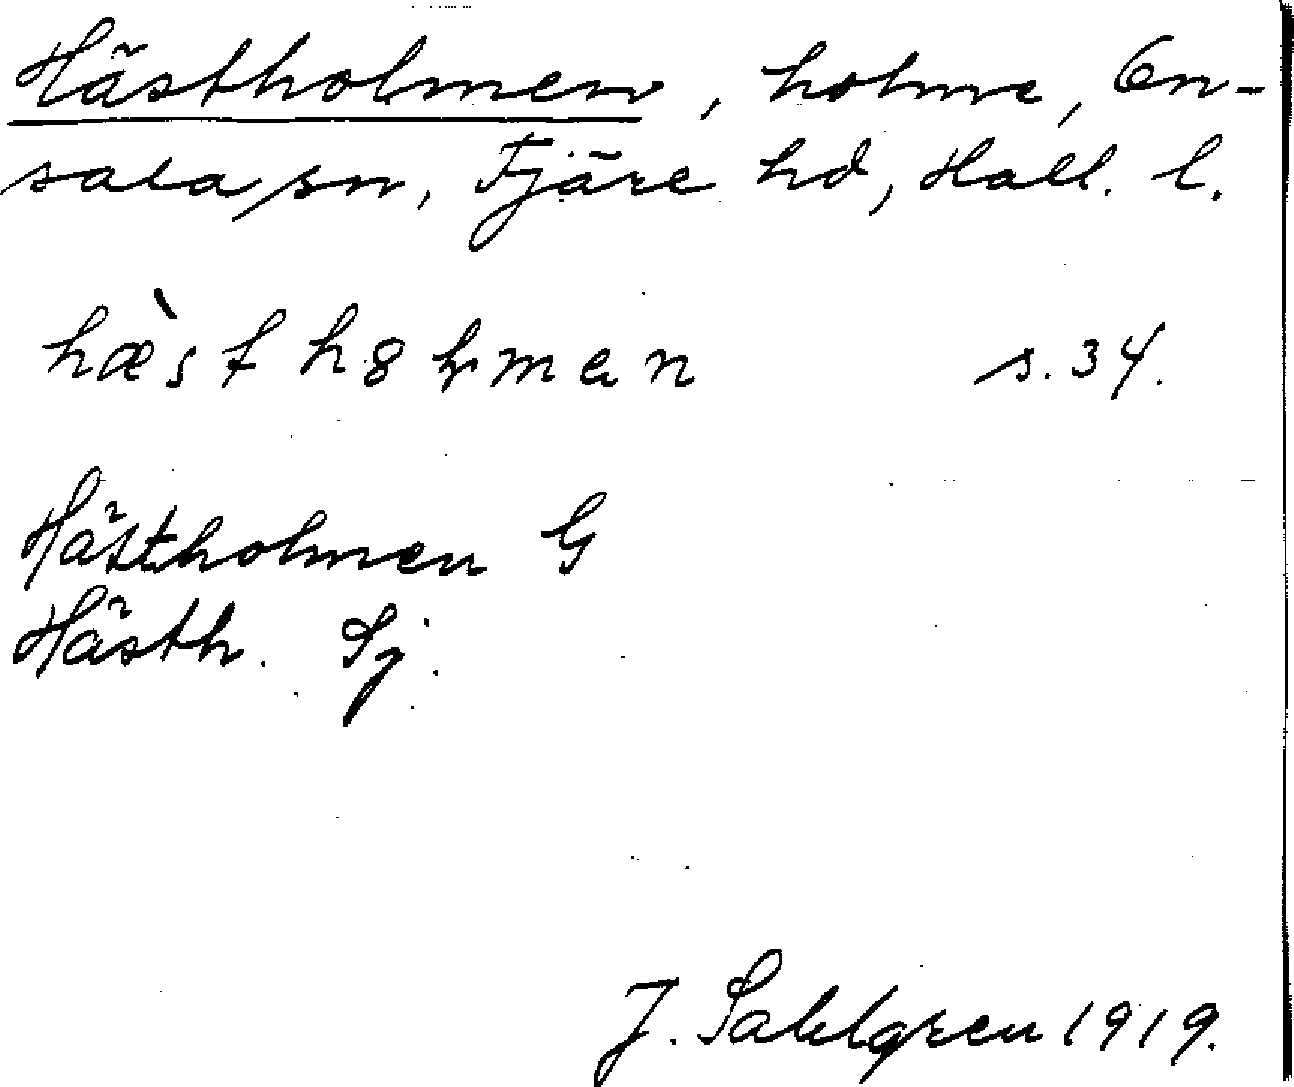 Hästholmen, holme, On-
sala sn, Fjäre hd, Hall. l.
hæ̀st h8ɫmen s. 34.
Hästholmen G
Hästh. Sj.
J. Sahlgren 1919.